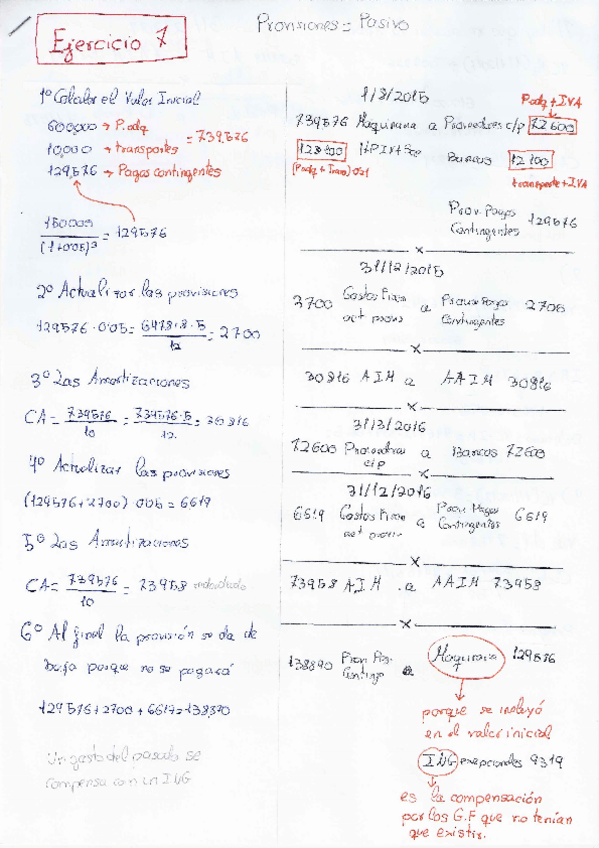 Provisiones = Pasivo
Ejercicio 7
1º Calcular el Valor Inicial
600,000 → P.adq
10,000 → transportes = 739,576
129,576 → Pagos contingentes
150000 / (1+0'05)³ = 129576
2º Actualizar las provisiones
129576 · 0'05 = 6478'8 · 5 / 12 = 2700
3º Las Amortizaciones
CA = 739576 / 10 = 739576 · 5 / 12 = 30816
4º Actualizar las provisiones
(129576+2700) 0'05 = 6619
5º Las Amortizaciones
CA = 739576 / 10 = 73958 redondeado
6º Al final la provisión se da de
baja porque no se pagará
129576+2700+6619=138,890
Un gasto del pasado se
compensa con un ING
1/8/2015
P.adq + IVA
739576 Maquinaria a Proveedores c/p 72600
128100 HP IVA Sop Bancos 12100
(P.adq + Trans) 0'21
transporte + IVA
Prov. Pagos
Contingentes 129576
x
31/12/2015
2700 Gastos Finan a Prov. Pagos 2700
act provis Contingentes
x
30816 AIM a AAIM 30816
x
31/3/2016
72600 Proveedores a Bancos 72600
c/p
x
31/12/2016
6619 Gastos Finan a Prov. Pagos 6619
act provis Contingentes
x
73958 AIM a AAIM 73958
x
138890 Prov Pag. a Maquinaria 129576
Conting
porque se incluyó
en el valor inicial
ING excepcionales 9319
es la compensación
por los G.F que no tenían
que existir.